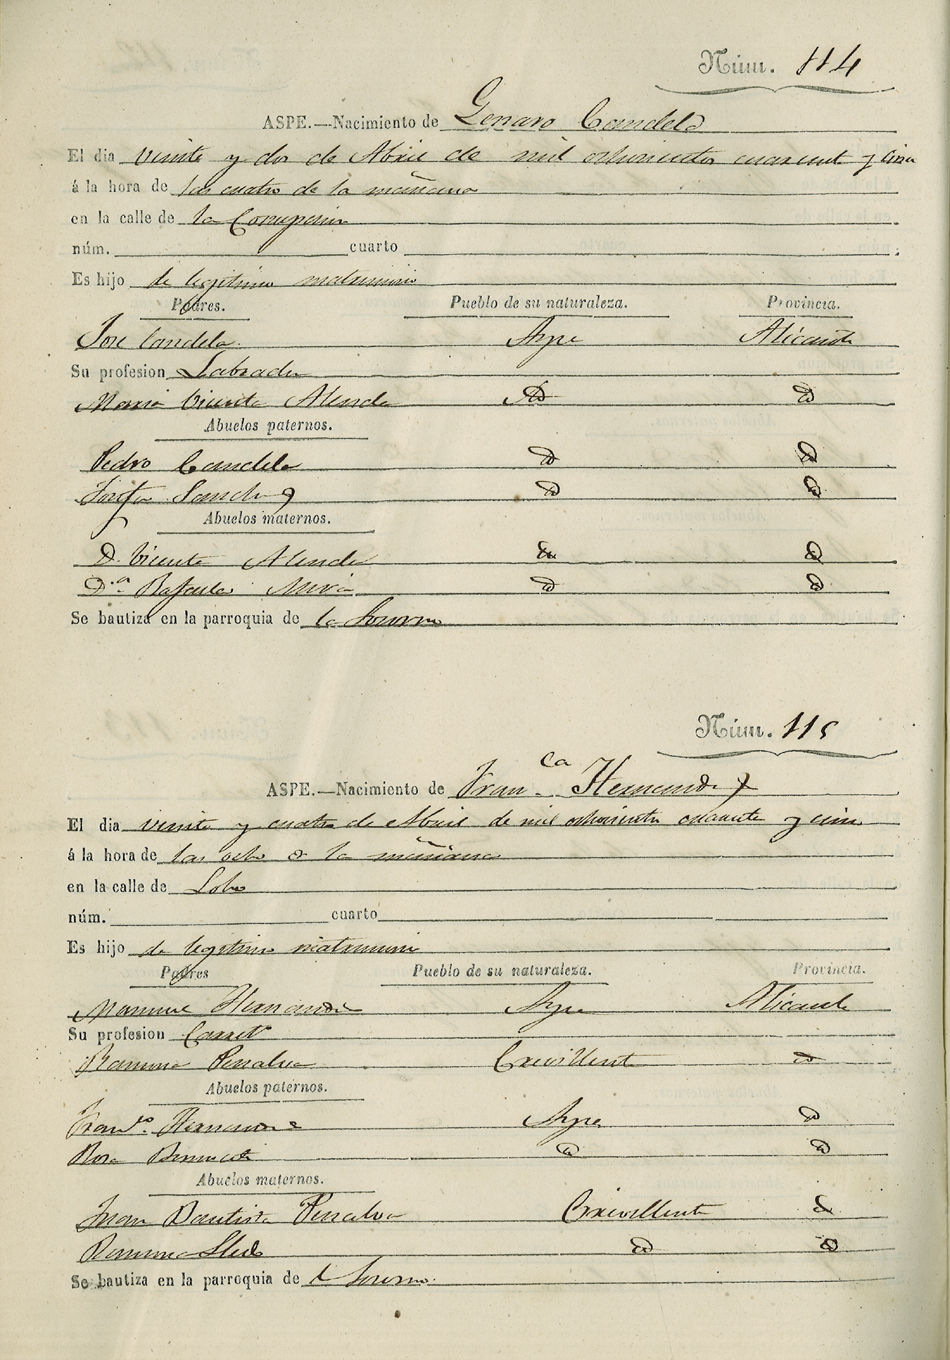 Núm. 114
ASPE.—Nacimiento de Genaro Candela
El dia veinte y dos de Abril de mil ochocientos cuarent y cinc
á la hora de las cuatro de la mañana
en la calle de la
núm. cuarto
Es hijo de legitimo matrimonio
Padres. Pueblo de su naturaleza. Provincia.
Jose Candela Aspe Alicante
Su profesion Labrador
Maria Vicenta
Abuelos paternos.
Pedro Candela
Josefa Sanchez
Abuelos maternos.
D. Vicente
D.ª Rafaela
Se bautiza en la parroquia de
Núm. 115
ASPE.—Nacimiento de Fran.ca Hernandez
El dia veinte y cuatro de Abril de mil ochocientos cuarenta y cinco
á la hora de las ocho de la mañana
en la calle de Lobo
núm. cuarto
Es hijo de legitimo matrimonio
Padres Pueblo de su naturaleza. Provincia.
Hernandez Aspe Alicante
Su profesion
Ramona Penalva Crevillente
Abuelos paternos.
Fran.co Hernandez Aspe
Rosa
Abuelos maternos.
Juan Bautista Penalva Crevillente
Ramona
Se bautiza en la parroquia de